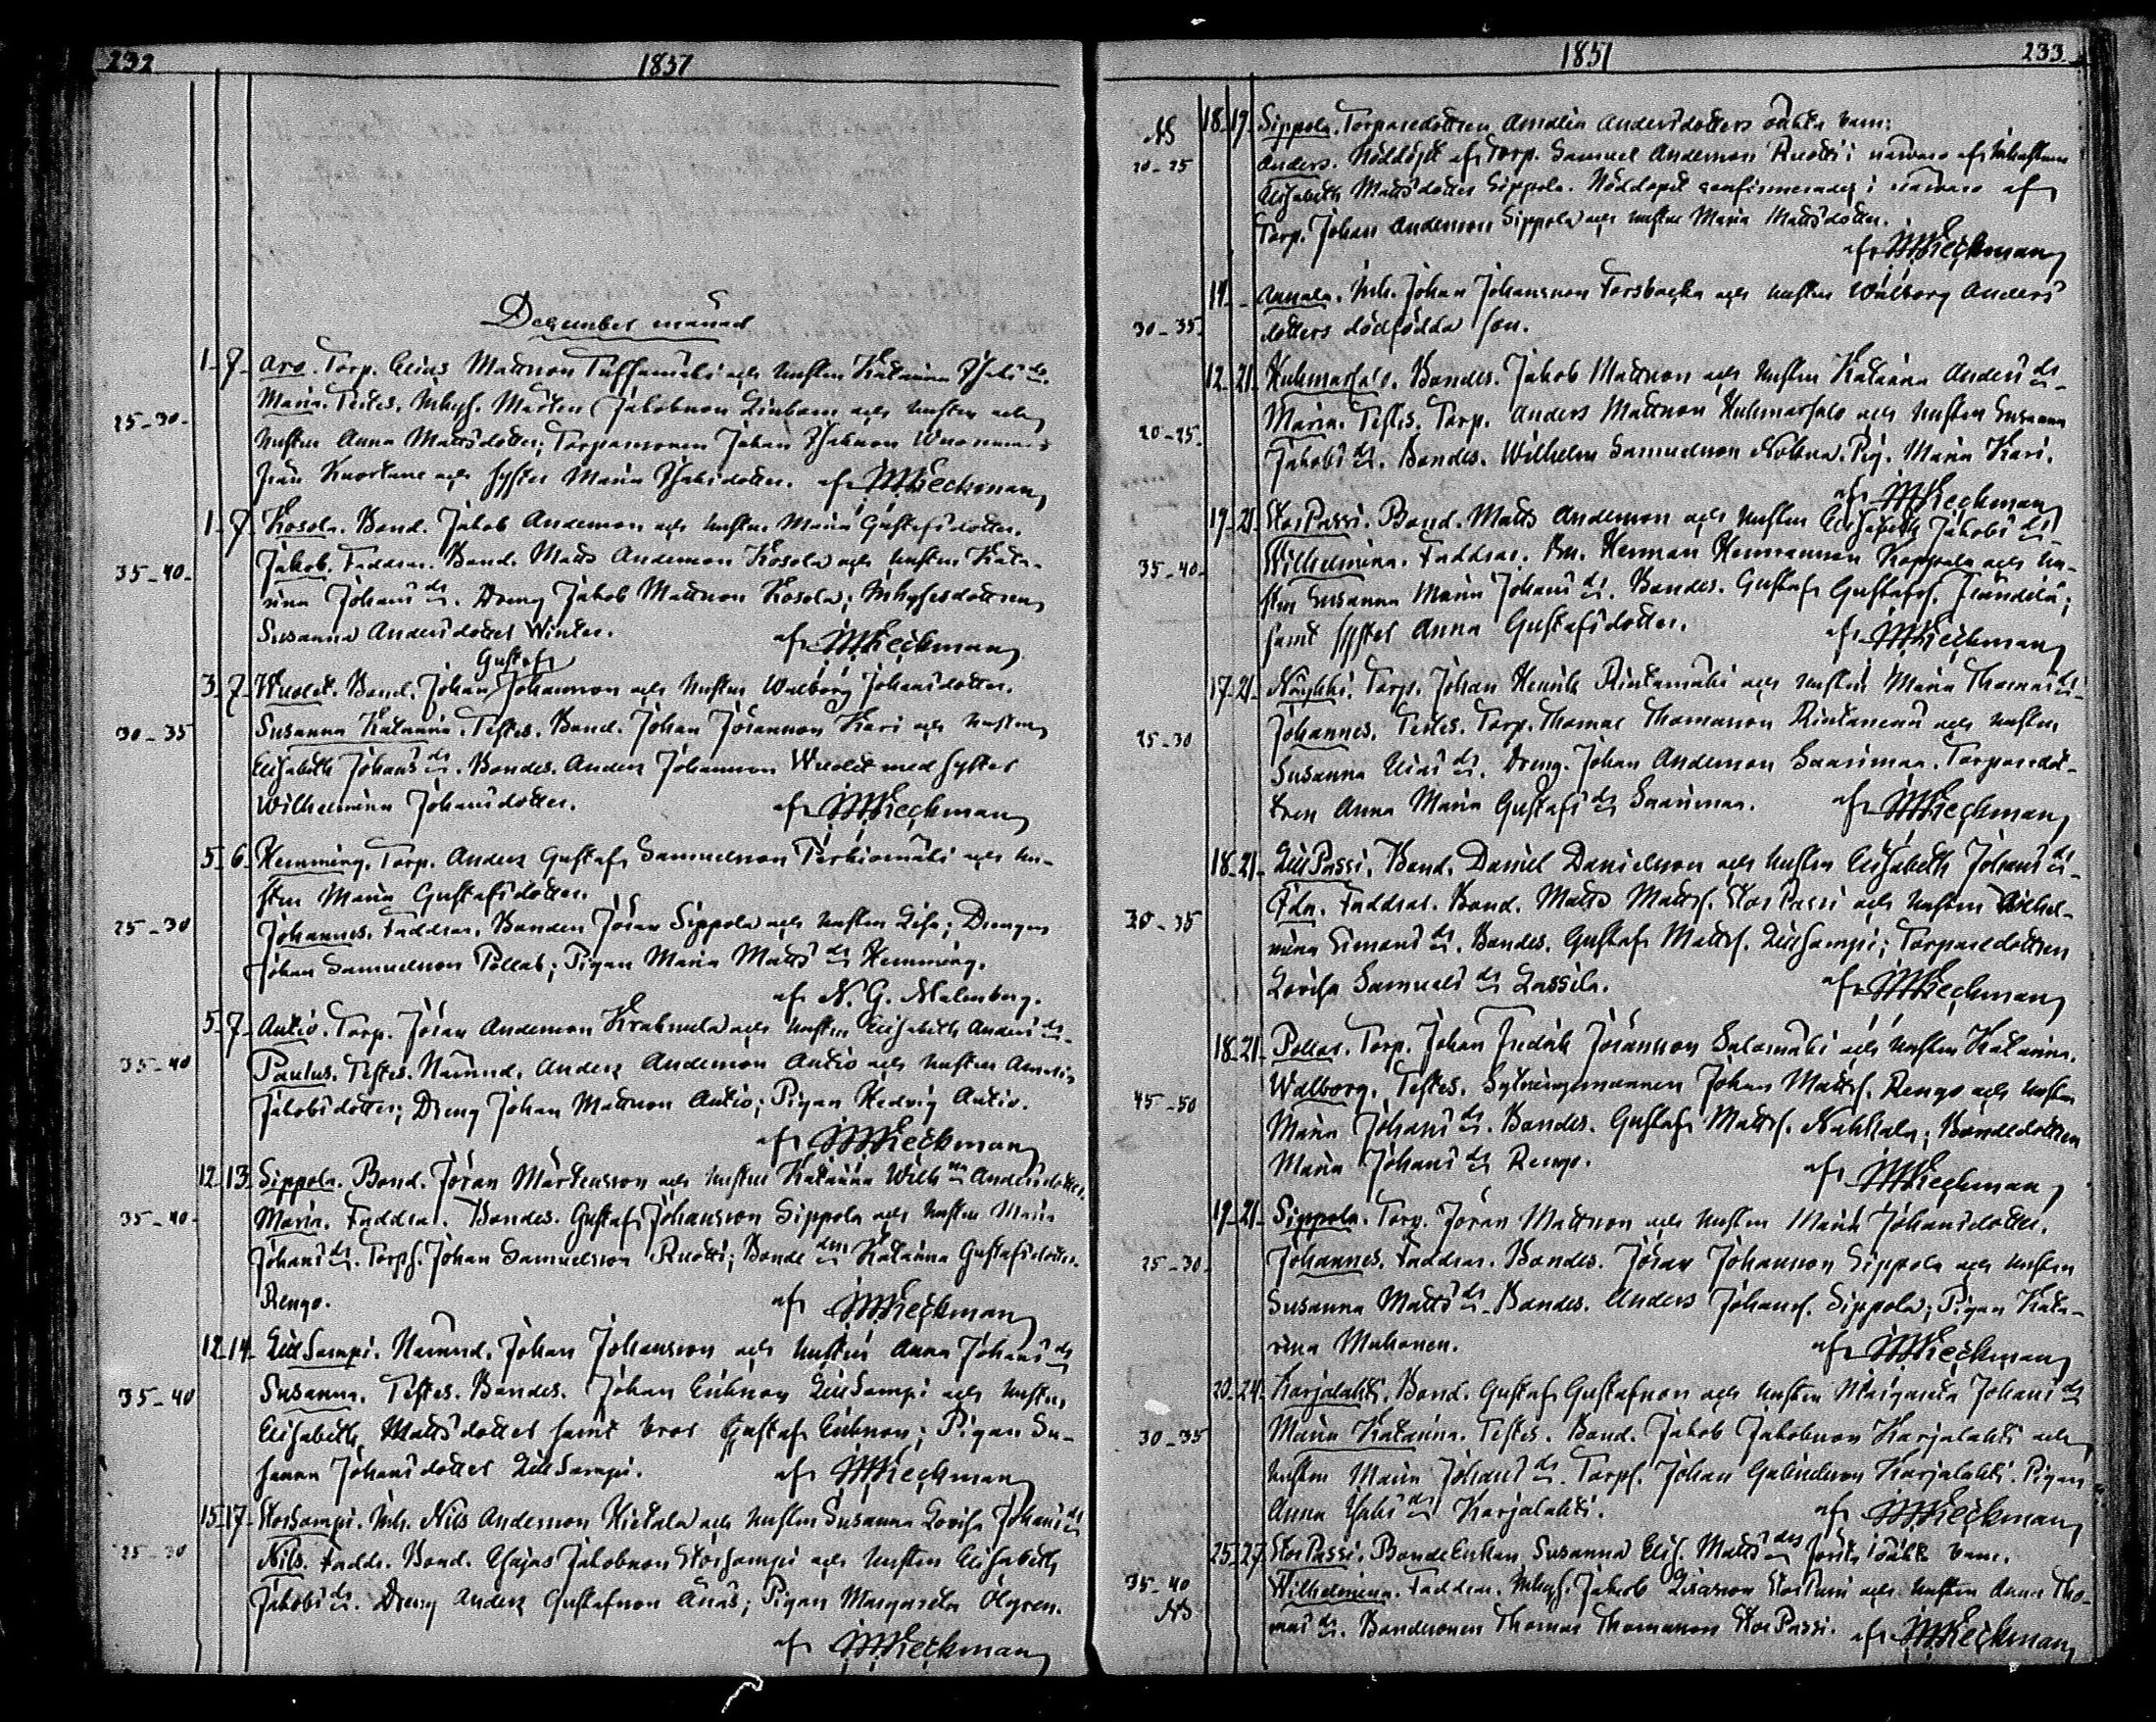 232
1851
December månad
1 7 Aro. Torp. Elias Mattsson och hustru Katarina ds
25-30 Maria. Testes. Inhys. Mårten Jakobsson och hustru och
hustru Anna Mattsdotter; Torparesonen Johan
från Kuortane och syster Maria
af MKeckman
1 7 Kosola. Bond. Jakob Andersson och hustru Maria Gustafsdotter.
35-40 Jakob. Faddrar. Bond. Matts Andersson Kosola och hustru Kata-
rina Johans ds. Dreng Jakob Mattsson Kosola; Inhysesdottren
Susanna Andersdotter Winter. af MKeckman
Gustaf
3 7 Wuolet. Bond. Johan Johansson och hustru Walborg Johansdotter.
30-35 Susanna Katarina. Testes. Bond. Johan Jöransson Kari och hustru
Elisabeth Johans ds. Bondes. Anders Johansson Wuolet med syster
Wilhelmina Johansdotter. af MKeckman
5 6 Hemming. Torp. Anders Gustaf Samuelsson Perkiomäki och hu-
stru Maria Gustafsdotter.
25-30 Johannes. Faddrar. Bonden Jöran Sippola och hustru Lisa; Drengen
Johan Samuelsson Pollas; Pigan Maria Matts ds Hemming.
af N. G. Malmberg.
5 7 Autio. Torp. Jöran Andersson och hustru Elisabeth Anders ds
35-40 Paulus. Testes. Nämnd. Anders Andersson Autio och hustru
Jakobsdotter; Dreng Johan Mattsson Autio; Pigan Hedvig Autio.
af MKeckman
12 13 Sippola. Bond. Jöran Mårtensson och hustru Katarina Wilh na Andersdotter.
35-40 Maria. Faddrar. Bondes. Gustaf Johansson Sippola och hustru Maria
Johans ds. Torps. Johan Samuelsson Ruotti; Bonde Katarina Gustafsdotter
Rengo. af MKeckman
12 14 LillSampi. Nämnd. Johan Johansson och hustru Anna Johans ds
35-40 Susanna. Testes. Bondes. Johan Eriksson LillSampi och hustru
Elisabeth Mattsdotter samt bror Gustaf Eriksson; Pigan Su-
sanna Johansdotter LillSampi. af MKeckman
15 17 StorSampi. Inh. Nils Andersson Hietala och hustru Susanna Lovisa Johans ds
25-30 Nils. Faddr. Bond. Jakobsson StorSampi och hustru Elisabeth
Jakobs ds. Dreng Anders Gustafsson Ånäs; Pigan Margareta Ölgren.
af MKeckman
1851
233
18 19 Sippola. Torparedottren Amalia Andersdotters oäkta barn:
20-25 Anders. Nöddöpt af Torp. Samuel Andersson Ruotti i närvaro af
Elisabeth Mattsdotter Sippola. Nöddopet confirmerades i närvaro af
Torp. Johan Andersson Sippola och hustru Maria Mattsdotter.
af MKeckman
Annala. Inh. Johan Johansson Forsbacka och hustru Walborg Anders
30-35 dotters dödfödda son.
12 21 Huhmarsalo. Bondes. Jakob Mattsson och hustru Katarina Anders ds
20-25 Maria. Testes. Torp. Anders Mattsson Huhmarsalo och hustru Susanna
Jakobs ds. Bondes. Wilhelm Samuelsson Pig. Maria Kari.
af MKeckman
19 21 StorPassi. Bond. Matts Andersson och hustru Elisabeth Jakobs ds
35-40 Wilhelmina. Faddrar. Herman Hermansson Koppala och hu-
stru Susanna Maria Johans ds. Bondes. Gustaf Gustafss.
samt syster Anna Gustafsdotter. af MKeckman
17 21 Näykki. Torp. Johan Henrik Rintamäki och hustru Maria Thomas ds
25-30 Johannes. Testes. Torp. Thomas Thomasson Rintamäki och hustru
Susanna Elias ds. Dreng. Johan Andersson Saarimaa. Torparedot-
tren Anna Maria Gustafs ds Saarimaa. af MKeckman
18 21 LillPassi. Bond. Daniel Danielsson och hustru Elisabeth Johans ds
30-35 Ida. Faddrar. Bond. Matts Mattss. StorPassi och hustru Wilhel-
mina Simons ds. Bondes. Gustaf Mattss. LillSampi; Torparedottren
Lovisa Samuels ds Lassila. af MKeckman
18 21 Pollas. Torp. Johan Fredrik Jöransson Salomäki och hustru Katarina.
45-50 Walborg. Testes. Sytningsmannen Johan Mattss. Rengo och hustru
Maria Johans ds. Bondes. Gustaf Mattss. Bondedottren
Maria Johans ds Rengo. af MKeckman
19 21 Sippola. Torp. Jöran Mattsson och hustru Maria Johansdotter.
25-30 Johannes. Faddrar. Bondes. Jöran Johansson Sippola och hustru
Susanna Matts ds. Bondes. Anders Johanss. Sippola; Pigan Kata-
rina Muhonen. af MKeckman
20 24 Karjalahti. Bond. Gustaf Gustafsson och hustru Margareta Johans ds
30-35 Maria Katarina. Testes. Bond. Jakob Jakobsson Karjalahti och
hustru Maria Johans ds. Torps. Johan Karjalahti. Pigan
Anna ds Karjalahti. af MKeckman
25 27 StorPassi. Bondeenkan Susanna Elis. Matts oäkta barn.
35-40 Wilhelmina. Faddrar. Inhys. Jakob StorPassi och hustru Anna Tho-
mas ds. Bondesonen Thomas Thomasson StorPassi. af MKeckman